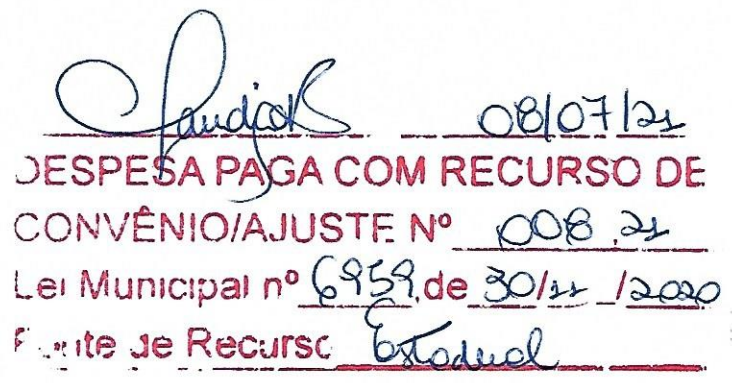 08/07/21
DESPESA PAGA COM RECURSO DE
CONVÊNIO/AJUSTE Nº 008.21
Lei Municipal nº 6959, de 30/11/2020
Fonte de Recurso Estadual